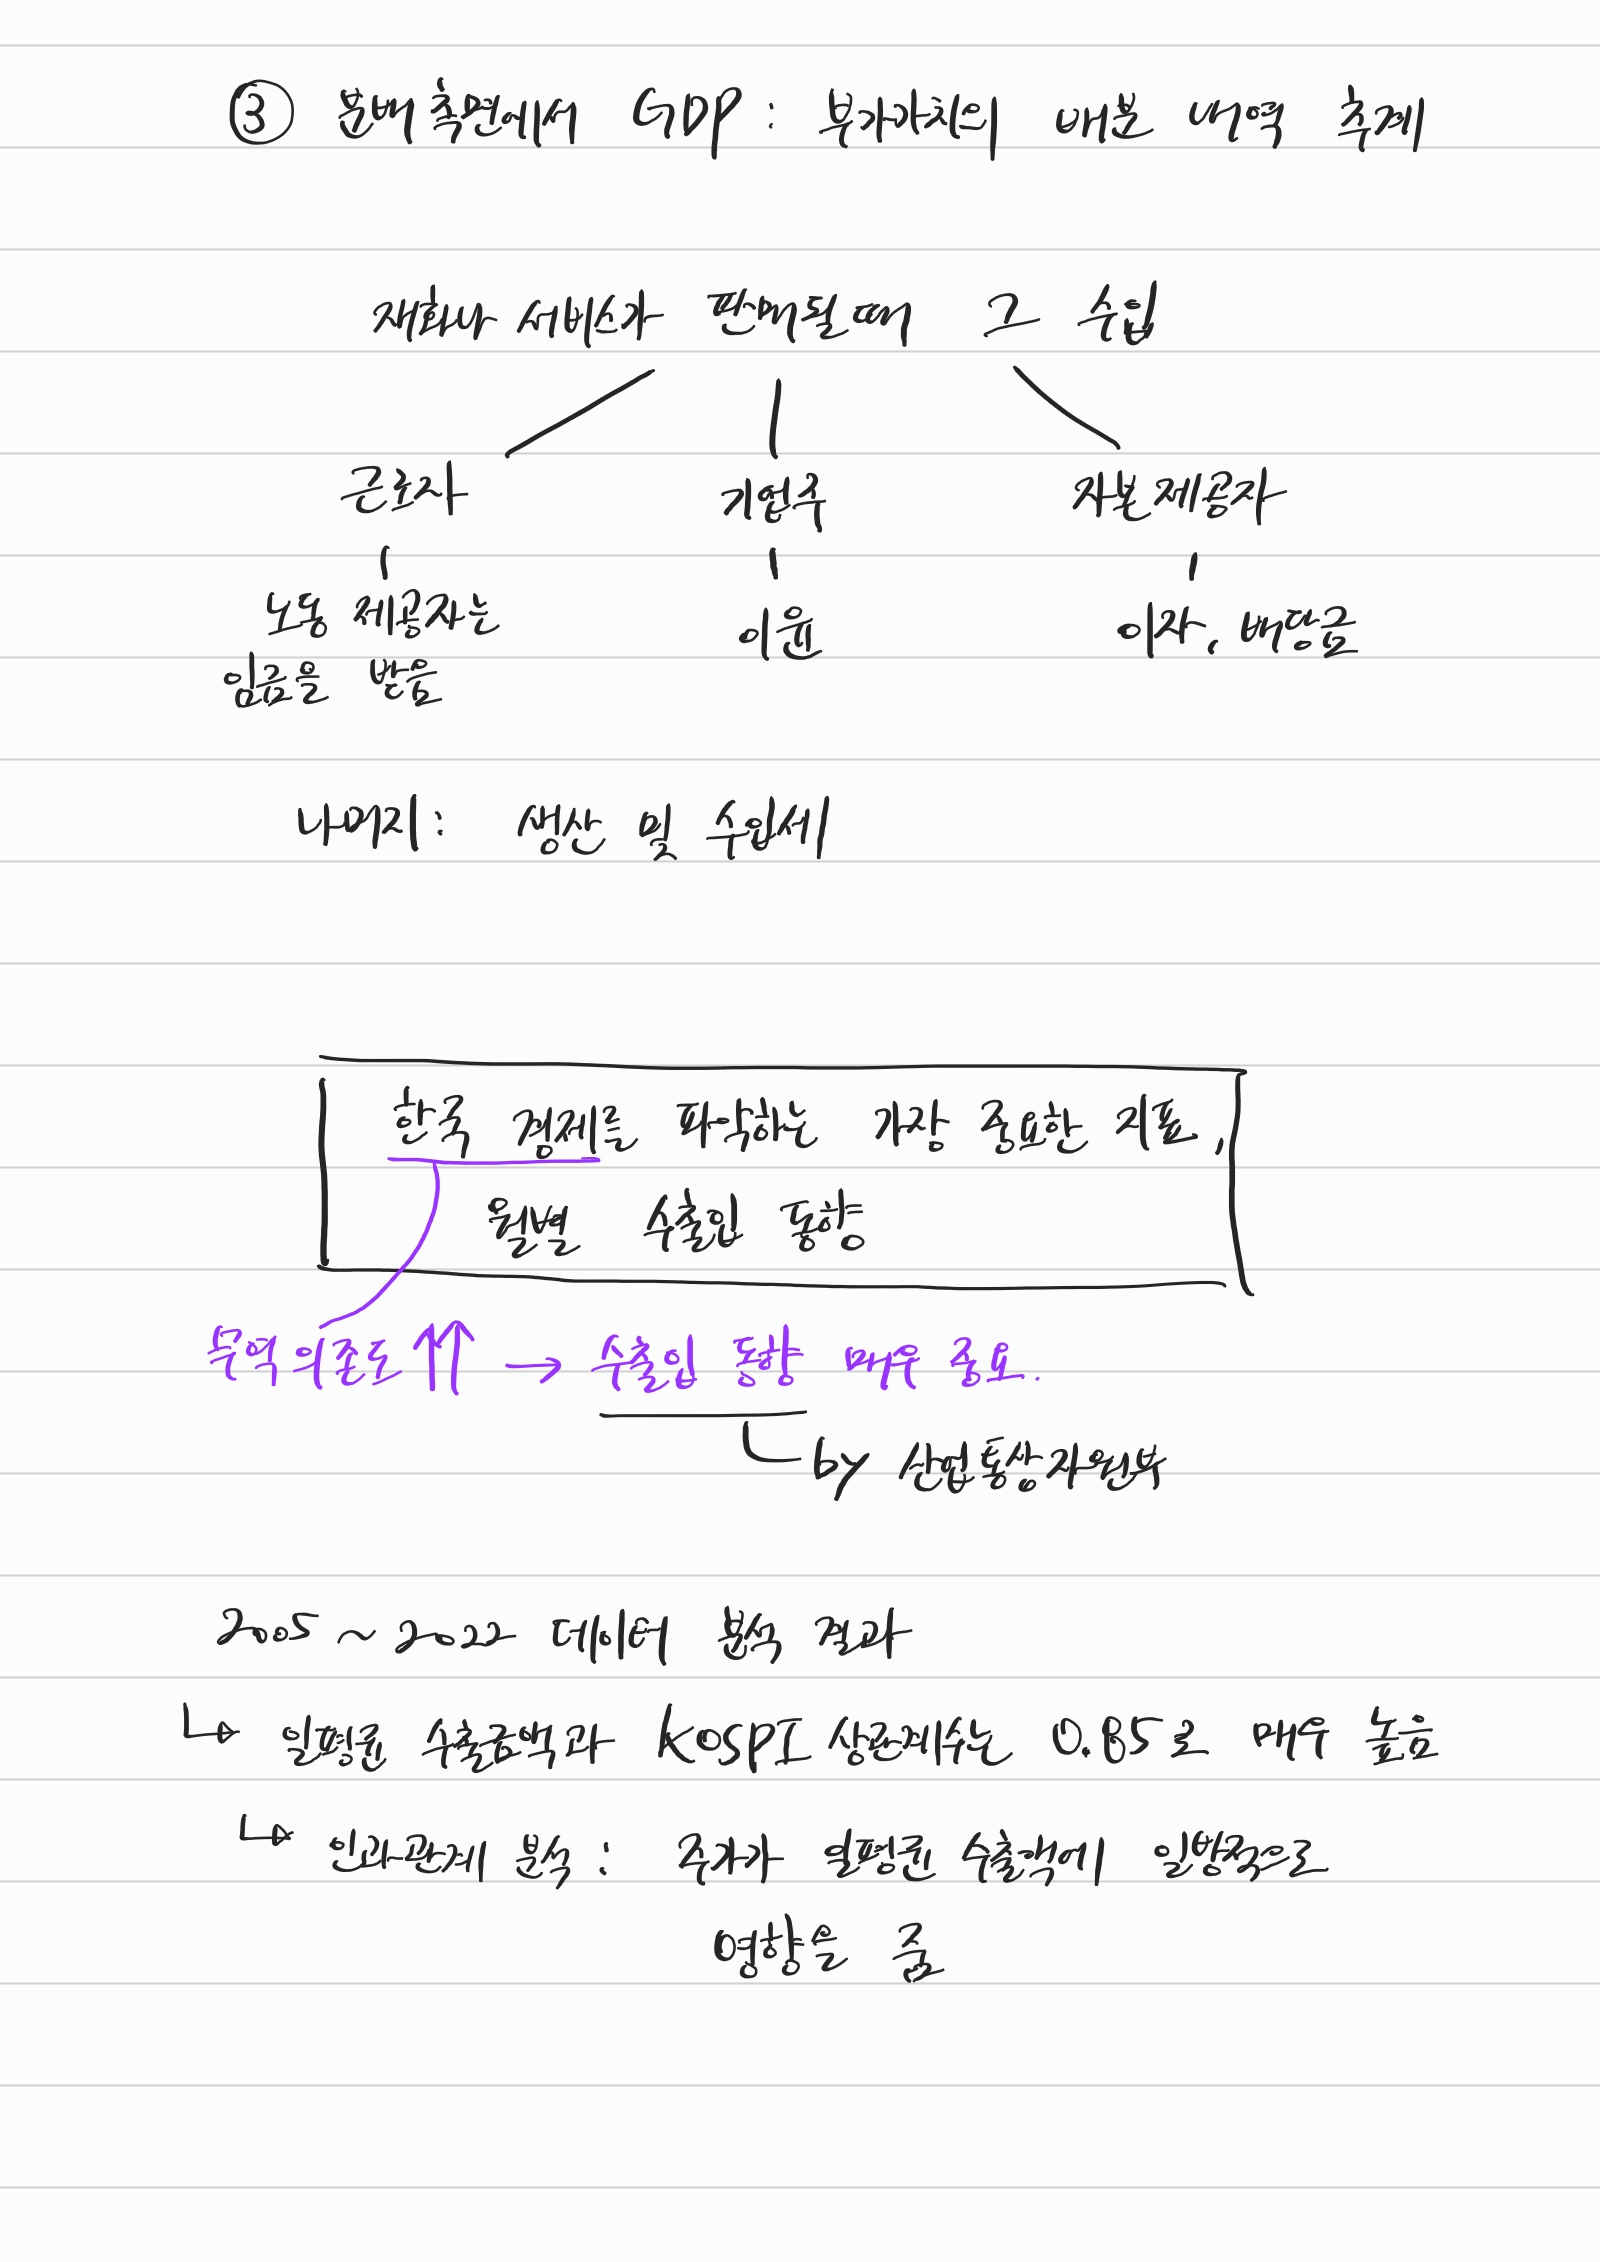 ③ 분배 측면에서 GDP : 부가가치의 배분 내역 추계
재화나 서비스가 판매될 때 그 수입
근로자 기업주 자본 제공자
노동 제공자는 이윤 이자, 배당금
임금을 받음
나머지 : 생산 및 수입세
한국 경제를 파악하는 가장 중요한 지표,
월별 수출입 동향
무역 의존도 ↑↑ → 수출입 동향 매우 중요.
by 산업통상자원부
2005 ~ 2022 데이터 분석 결과
↳ 일평균 수출금액과 KOSPI 상관계수는 0.85로 매우 높음
↳ 인과관계 분석 : 주가가 일평균 수출액에 일방적으로
영향을 줌